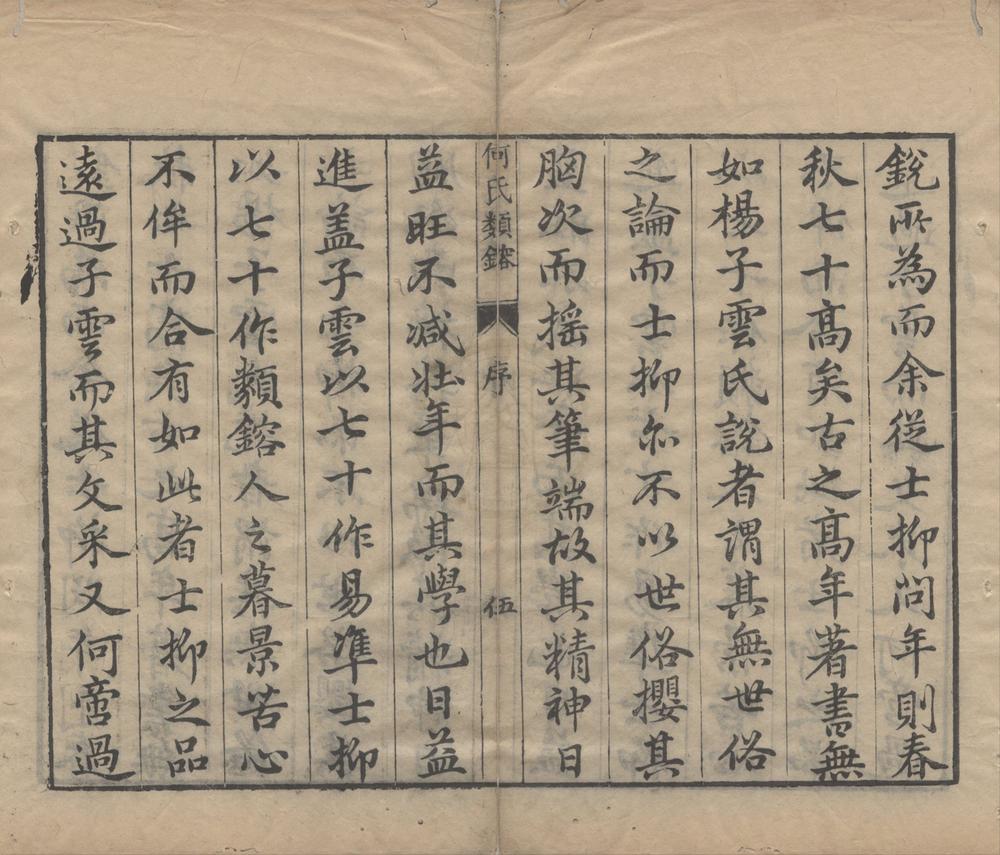 銳所為而余從士抑問年則春
秋七十髙矣古之髙年著書無
如楊子雲氏說者謂其無世俗
之論而士抑亦不以世俗攖其
胸次而搖其筆端故其精神日
何氏類鎔
序
伍
益旺不减壯年而其學也日益
進盖子雲以七十作易凖士抑
以七十作類鎔人之暮景苦心
不侔而合有如此者士抑之品
遠過子雲而其文采又何啻過